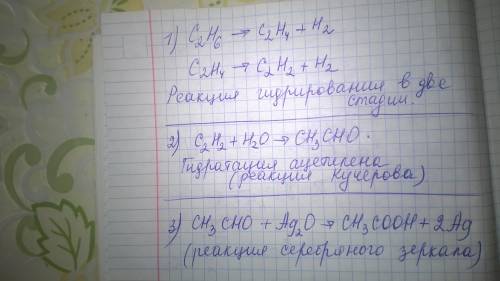 1) C₂H₆ → C₂H₄ + H₂
C₂H₄ → C₂H₂ + H₂
Реакция гидрирования в две
стадии.
2) C₂H₂ + H₂O → CH₃CHO.
Гидратация ацетилена
(реакция Кучерова)
3) CH₃CHO + Ag₂O → CH₃COOH + 2Ag
(реакция серебряного зеркала)